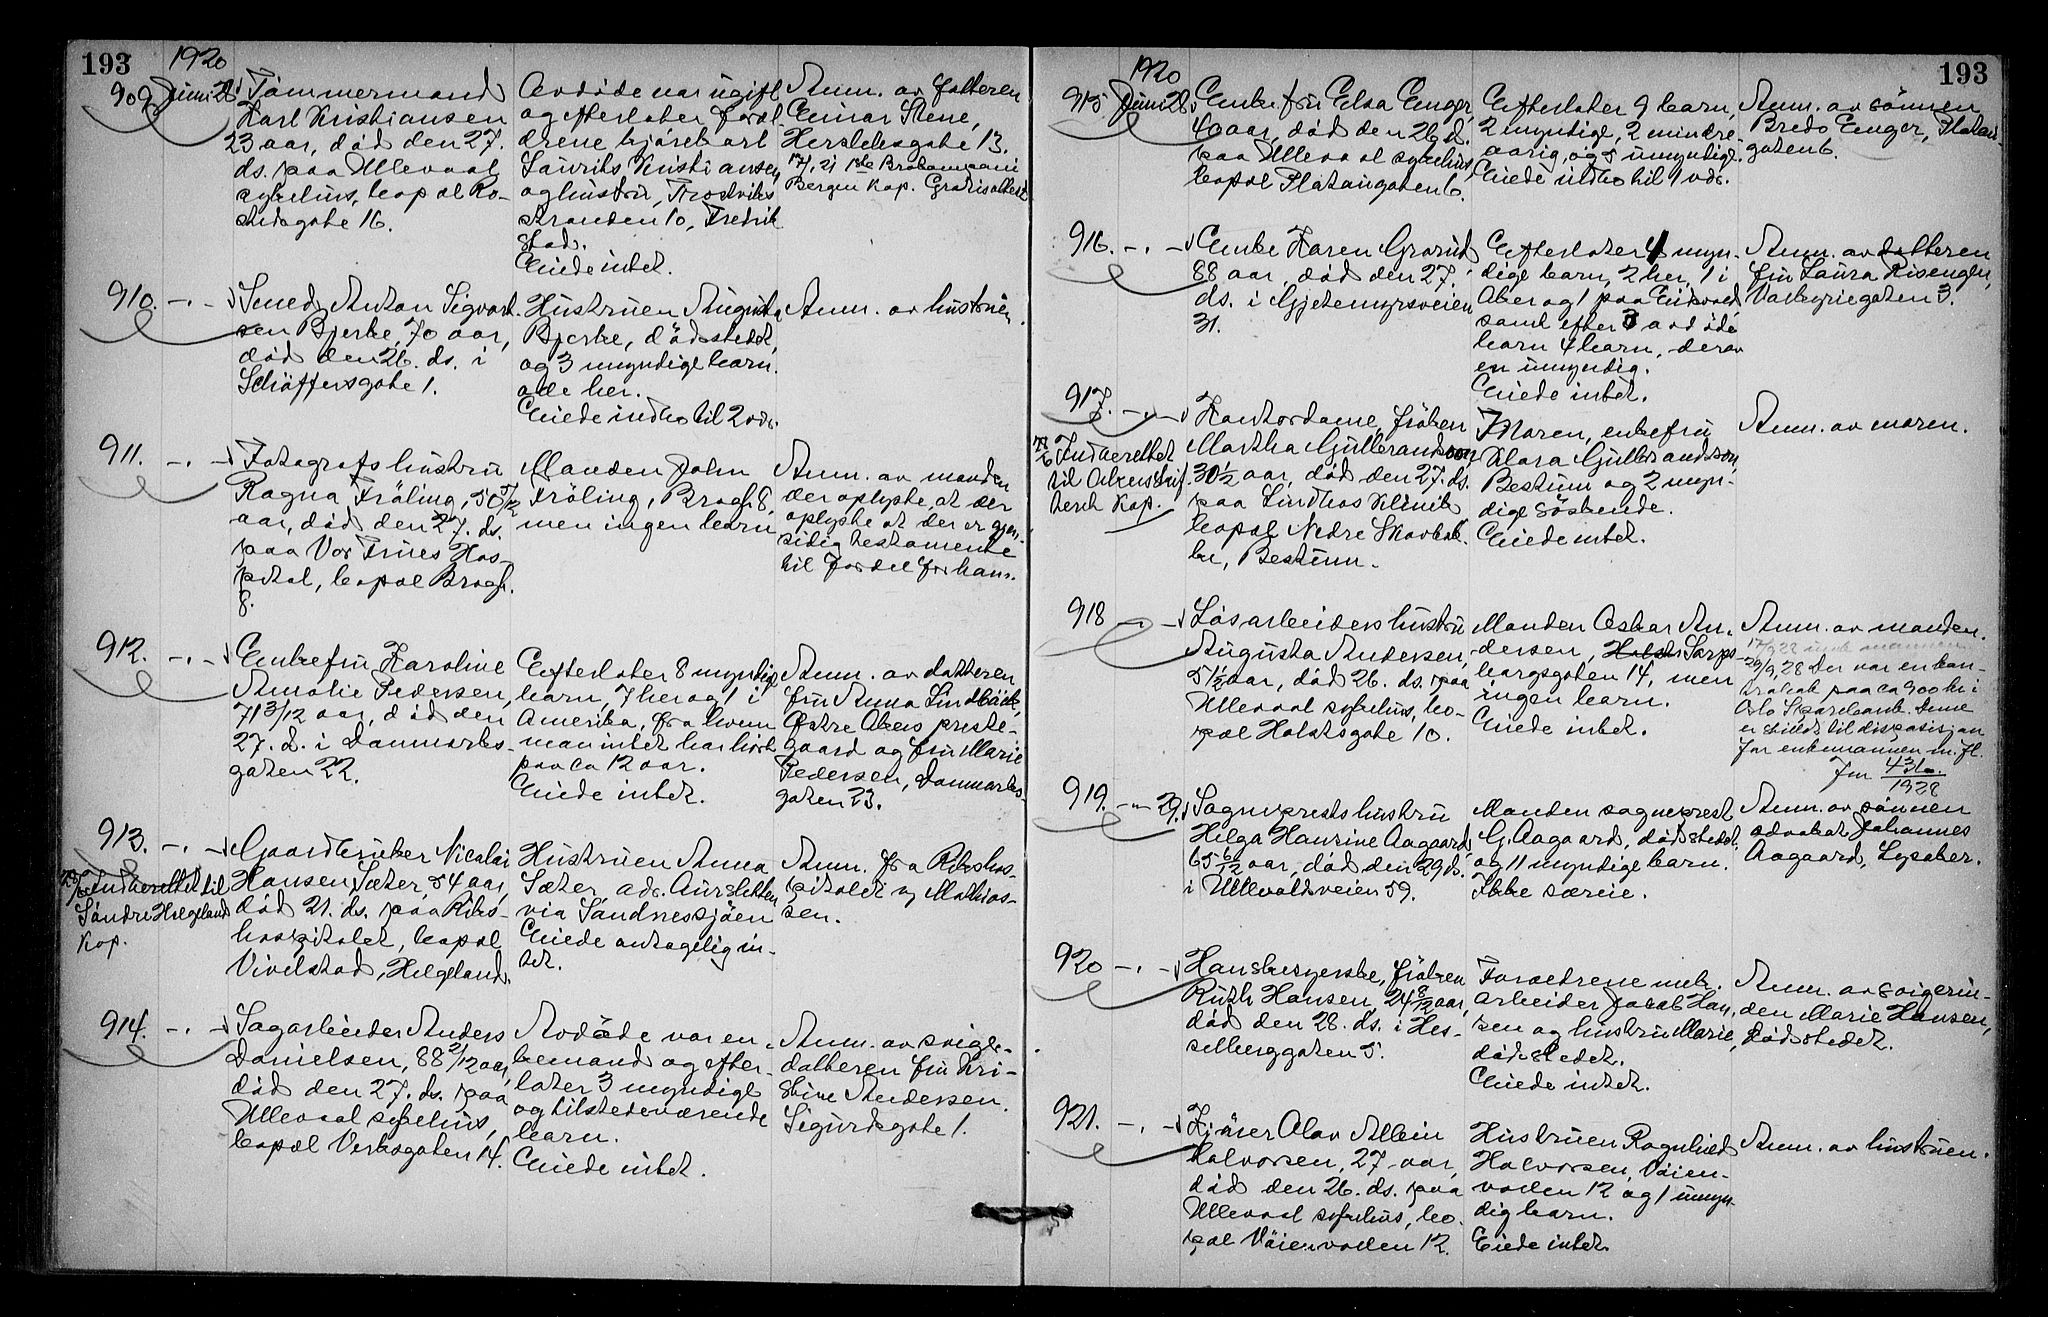 193
1920
909. Juni 28
Tømmermand
Karl Kristiansen
23 aar, død den 27.
ds. paa Ullevaal
sykehus, bopæl Ro-
stedsgate 16.
Avdøde var ugift
og efterlater foræl-
drene
Lauritz Kristiansen
og hustru,
stranden 10, Fredrik
stad.
Eiede intet.
Anm. av fatteren
Einar Stene,
Herslebsgate 13.
Bergen Kop. Gratisattest
910. - . -
Smed Anton Sigvart-
sen Bjerke, 70 aar,
død den 26. ds. i
Schöffersgate 1.
Hustruen Augusta
Bjerke, dødsstedet,
og 3 myndige barn.
alle her.
Eiede indbo til 2 vds.
Anm. av hustruen.
911. - . -
Fotografs hustru
Ragna Fröling, 50 7/12
aar, død den 27. ds.
paa Vor Frues Hos-
pital, bopæl Brogt.
8.
Manden John
Fröling, Brogt. 8,
men ingen barn
Anm. av manden
der oplyste, at der
oplyste at der er gjen-
sidig testamente
til fordel for ham.
912. - . -
Enkefru Karoline
Amalie Pedersen,
71 3/12 aar, død den
27. d. i Danmarks-
gaten 22.
Efterlater 8 myndige
barn, 7 her og 1 i
Amerika, fra hvem
man intet har hørt
paa ca 12 aar.
Eiede intet.
Anm. av datteren
fru Anna Lindbäck,
Østre Akers preste-
gaard og fru Marie
Pedersen, Danmarks-
gaten 23.
913. - . -
Indberettet til
Søndre Helgeland
Kop.
Gaardbruker Nicolai
Hansen Sæter, 54 aar,
død 21. ds. paa Riks-
hospitalet, bopæl
Vivelstad, Helgeland.
Hustruen Anna
Sæter, adr.
via Sandnessjøen
Eiede antagelig in-
tet.
Anm. fra Rikshos-
pitalet v Mathias-
sen.
914. - . -
Sagarbeider Anders
Danielsen, 88 2/12 aar,
død den 27. ds. paa
Ullevaal sykehus,
bopæl Verksgaten 14.
Avdøde var en-
kemand og efter-
later 3 myndige
og tilstedeværende
barn.
Eiede intet.
Anm. av sviger-
datteren fru Kri-
stine Andersen.
Sigurdsgate 1.
193
1920
915. Juni 28.
Enkefru Elsa Enger,
40 aar, død den 26 d.
paa Ullevaal sykehus,
bopæl Platougaten 6.
Efterlater 9 barn,
2 myndige, 2 mindre-
aarig, og 5 umyndige.
Eiede indbo til 1 vds.
Anm. av sønnen
Bredo Enger, Platou-
gaten 6.
916. - . -
Enke Karen Grorud
88 aar, død den 27.
ds. i Gjetemyrsveien
31.
Efterlater 4 myn-
dige barn, 2 her, 1 i
Aker og 1 paa Eidsvold,
samt efter 3 avdøde
barn 4 barn, derav
en umyndig.
Eiede intet.
Anm. av datteren
fru Laura Risengen,
Valkyriegaten 3.
917. - . -
7/6 Indberettet
til Aker skif-
terets Kop.
Kontordame, frøken
Martha Gulbrandson
30 1/2 aar, død den 27. ds.
paa Lindboes Klinik
bopæl Nedre Skovbak-
ke, Bestum.
Moren, enkefru
Klara Gulbrandson,
Bestum og 2 myn-
dige søskende.
Eiede intet.
Anm. av moren.
918 - . -
Løsarbeiders hustru
Augusta Andersen,
51 1/2 aar, død 26. ds. paa
Ullevaal sykehus, bo-
pæl Holstsgate 10.
Manden Oskar An-
dersen, Holsts Sarps-
borgsgaten 14, men
ingen barn.
Eiede intet.
Anm. av manden.
29/9, 28 Der var en ban-
kbok paa ca 900 kr i
Oslo Sparebank. Denne
er stillet til disposisjon
for enkemannen m. fl.
Jnr
1928
919. - " - 29.
Sogneprests hustru
Helga Hansine Aagaard,
65 6/12 aar, død den 29 ds.
i Ullevoldsveien 59.
Manden sogneprest
G. Aagaard, dødsstedet,
og 11 myndige barn.
Ikke særeie.
Anm. av sønnen
advokat Johannes
Aagaard, Lysaker.
920 - . -
Hansbesyerske, frøken
Ruth Hansen, 24 8/12 aar,
død den 28. ds. i Hes-
selberggaten 5.
Forældrene mek.
arbeider Jacob Han-
sen og hustru Marie,
dødsstedet.
Eiede intet.
Anm. av svigerin-
den Marie Hansen,
dødsstedet.
921. - . -
Kjører Olav Albin
Halvorsen, 27 aar,
død den 26. ds. paa
Ullevaal sykehus, bo-
pæl Vöienvolden 12.
Hustruen Ragnhild
Halvorsen, Vöien-
volden 12 og 1 umyn-
dig barn.
Eiede intet.
Anm. av hustruen.